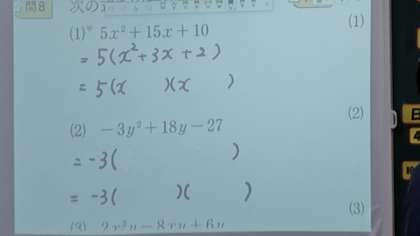 問8 次の
(1) 5x²+15x+10 (1)
= 5(x²+3x+2)
= 5(x )(x )
(2)
(2) -3y²+18y-27
= -3( )
= -3( )( )
(3)